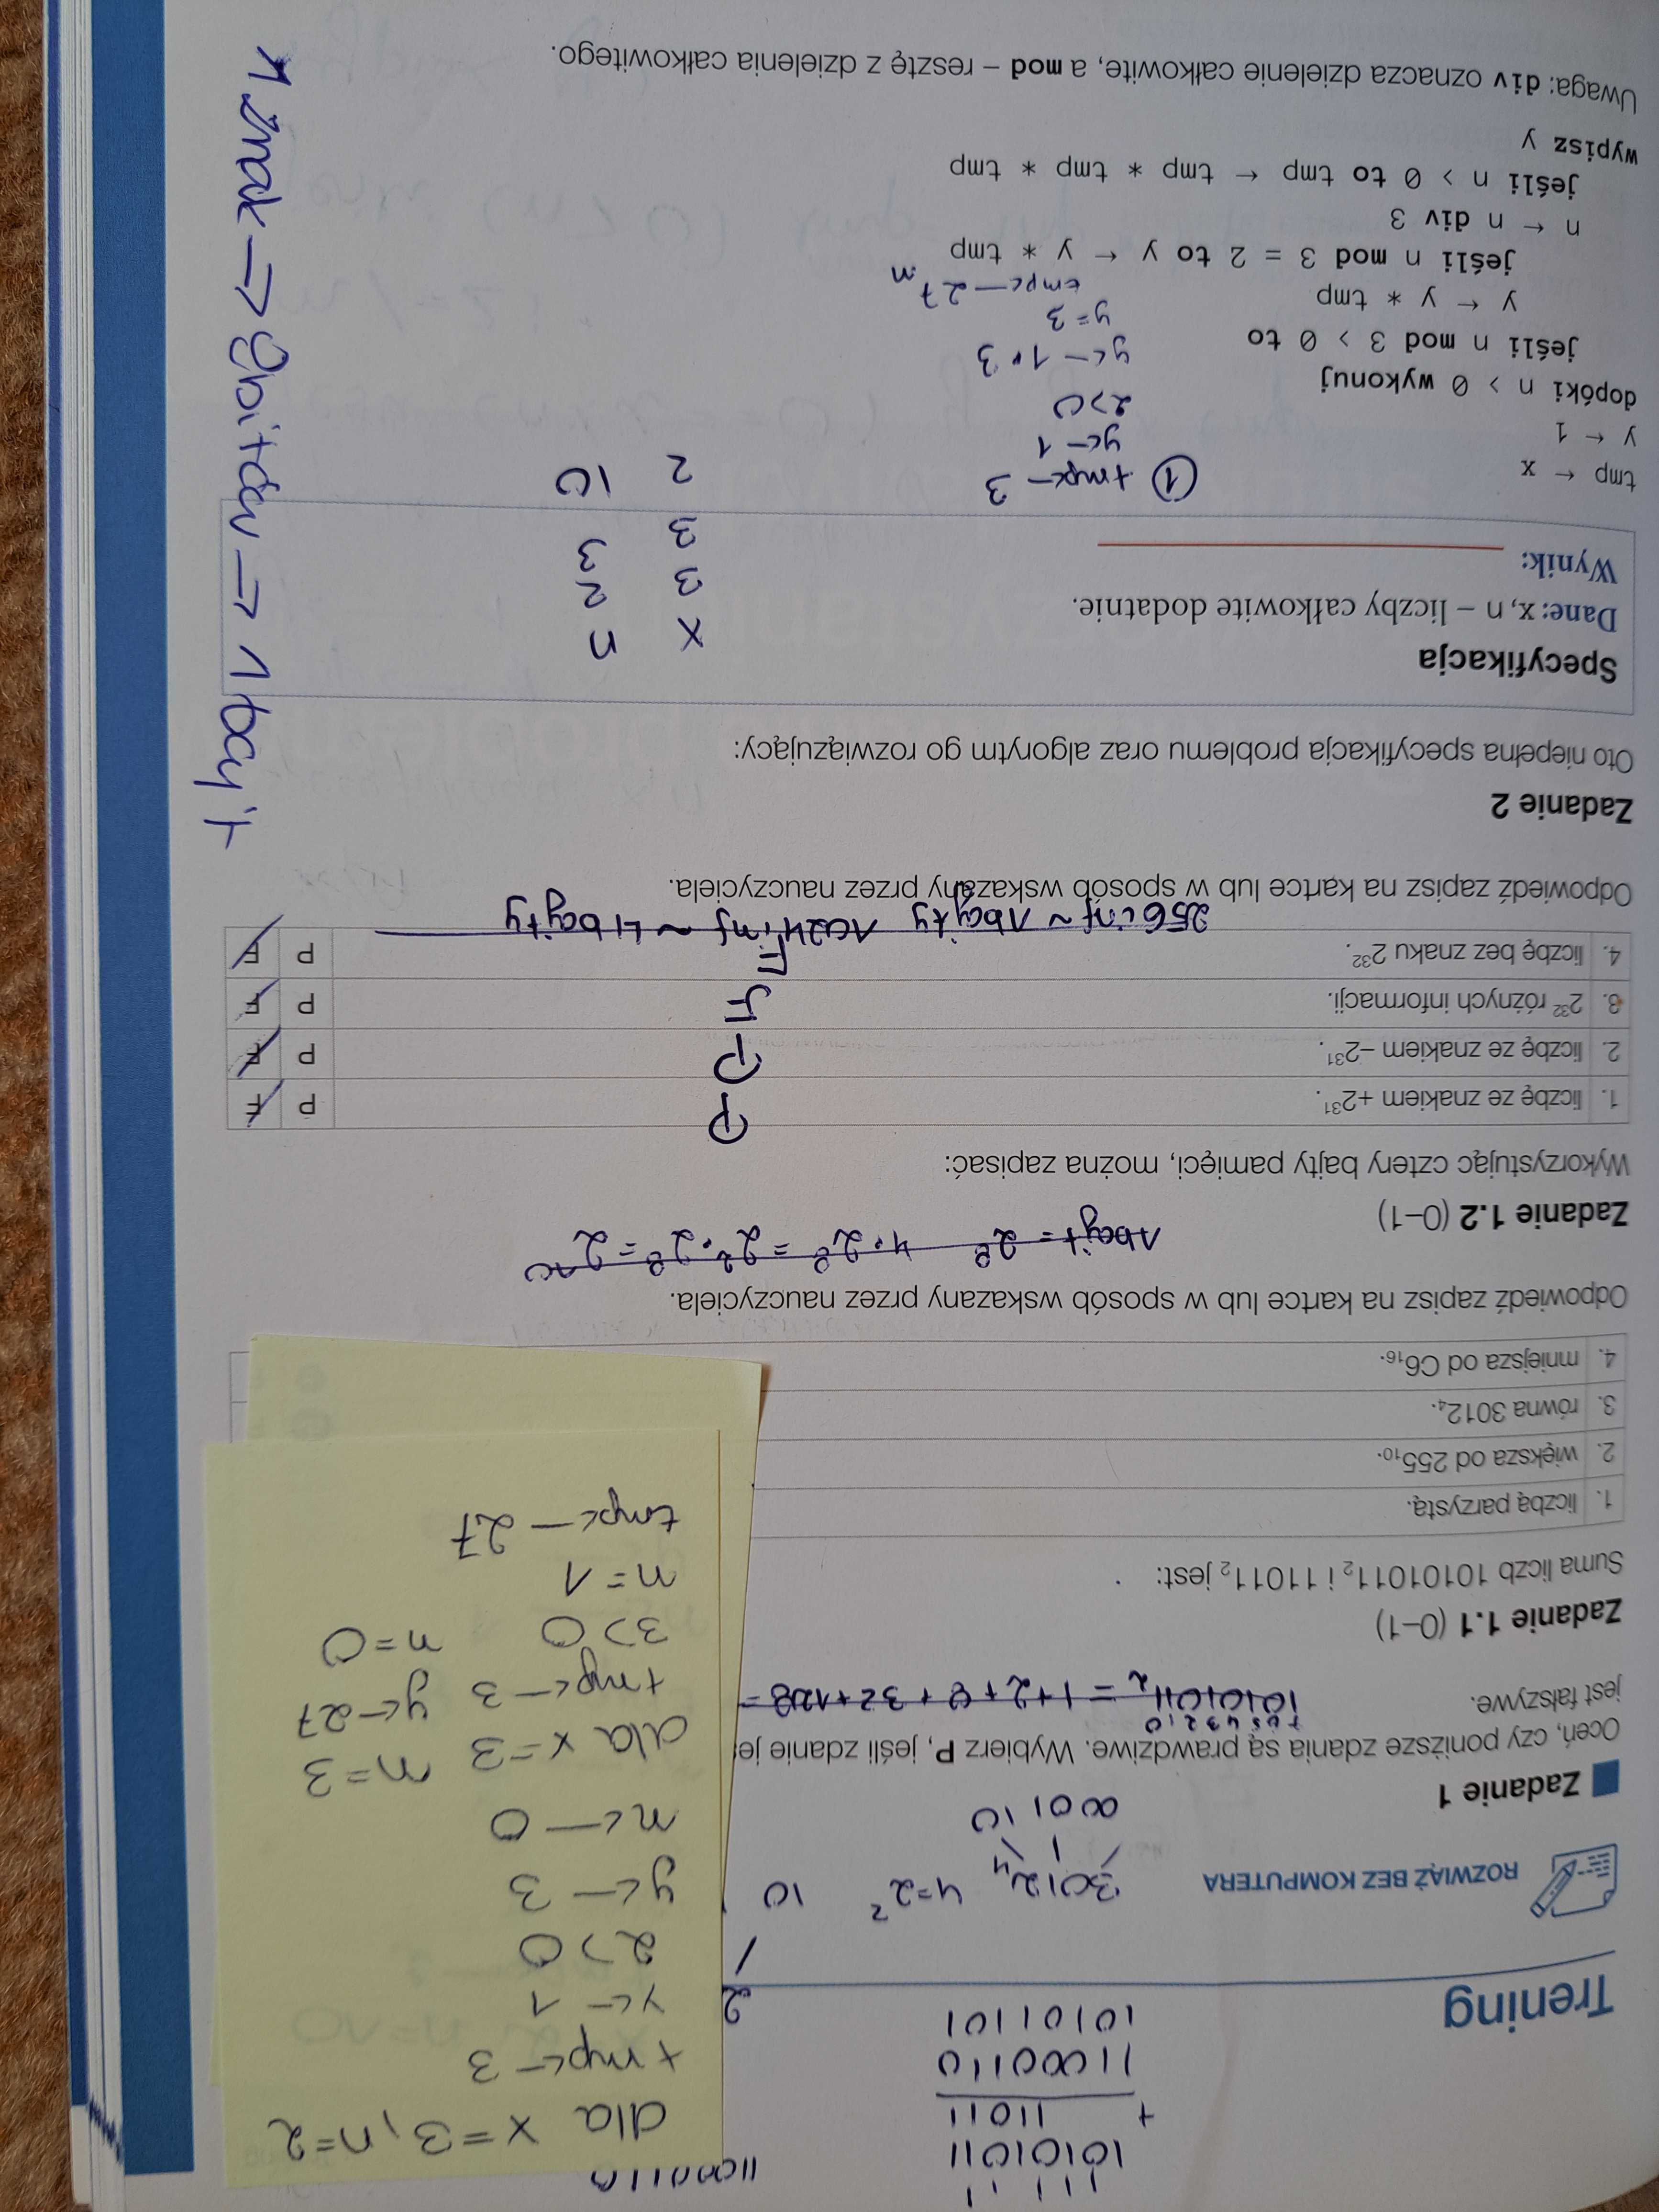 1 1 1 1
10101011
+ 11011
11000110
10101101
11000110
Trening
2
ROZWIĄŻ BEZ KOMPUTERA
3012₄ 4=2² 10
00 01 10
Zadanie 1
Oceń, czy poniższe zdania są prawdziwe. Wybierz P, jeśli zdanie jes
jest fałszywe.
7 6 5 4 3 2 1 0
10101011₂ = 1+2+8+32+128=
Zadanie 1.1 (0–1)
Suma liczb 10101011₂ i 11011₂ jest:
1. liczbą parzystą.
2. większa od 255₁₀.
3. równa 3012₄.
4. mniejsza od C6₁₆.
Odpowiedź zapisz na kartce lub w sposób wskazany przez nauczyciela.
dla x=3, n=2
tmp<–3
y<–1
2>0
y<–3
n<–0
dla x=3 n=3
tmp<–3 y<–27
3>0 n=0
n=1
tmp<–27
1bajt = 2⁸ 4·2⁸ = 2²·2⁸ = 2¹⁰
Zadanie 1.2 (0–1)
Wykorzystując cztery bajty pamięci, można zapisać:
1. liczbę ze znakiem +2³¹. P P F
2. liczbę ze znakiem –2³¹. P P F
3. 2³² różnych informacji. F P F
4. liczbę bez znaku 2³². F P F
256 inf ~ 1bajty 1024 inf ~ 4 bajty
Odpowiedź zapisz na kartce lub w sposób wskazany przez nauczyciela.
Zadanie 2
Oto niepełna specyfikacja problemu oraz algorytm go rozwiązujący:
Specyfikacja
Dane: x, n – liczby całkowite dodatnie.
Wynik:
x n
3 2
3 3
2 10
tmp ← x
y ← 1
dopóki n > 0 wykonuj
jeśli n mod 3 > 0 to
y ← y * tmp
jeśli n mod 3 = 2 to y ← y * tmp
n ← n div 3
jeśli n > 0 to tmp ← tmp * tmp * tmp
wypisz y
1 tmp<–3
y<–1
2>0
y<–1·3
y=3
tmp<–27
Uwaga: div oznacza dzielenie całkowite, a mod – resztę z dzielenia całkowitego.
1 znak → 8bitów → 1 bajt